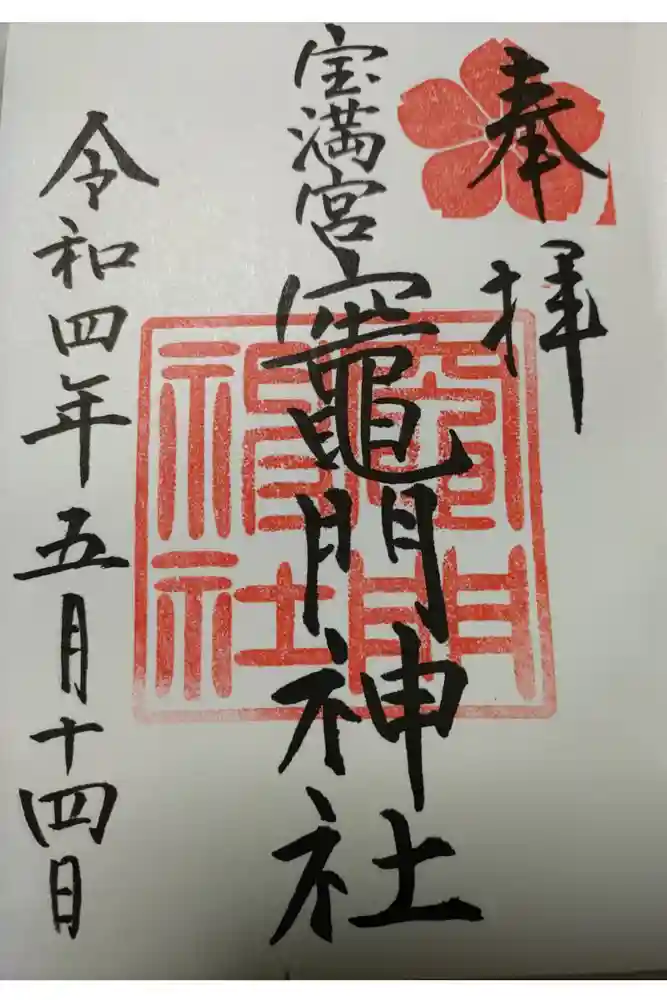 奉拝
宝満宮
竈門神社
令和四年五月十四日